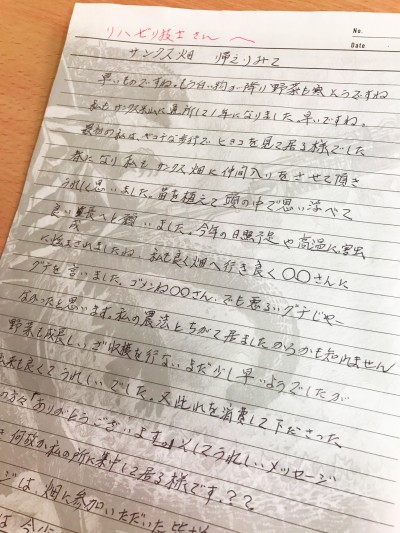 No.
Date
リハビリ技士さん へ
サンクス畑 帰えりみて
早いものですね。もう白い物が降り野菜も寒そうですね
私もサンクス米山に通所して1年になりました。早いですね。
最初の私は、ヨチヨチな歩行で、ヒヨコを見て居る様でした
春になり私もサンクス畑に仲間入りをさせて頂き
うれしく思いました。苗を植えて頭の中で思い浮べて
良い成長へと願いました。今年の日照不足や高温に害虫
に悩まされましたね 私も良く畑へ行き良く〇〇さんに
グチを言いました。ゴメンね〇〇さん。でも悪るいグチじゃー
なかったと思います。私の農法とちがって居ましたからかも知れません
野菜も成長し、ざ収穫を行ないまだ少し早いようでしたが
出来も良くてうれしいでした。又此れを消費して下ださった
の方々「ありがとうございます。」そしてうれしいメッセージ
何故か私の所に集中して居る様です。??
ジは、畑に参加いただいた皆さん
は 今年